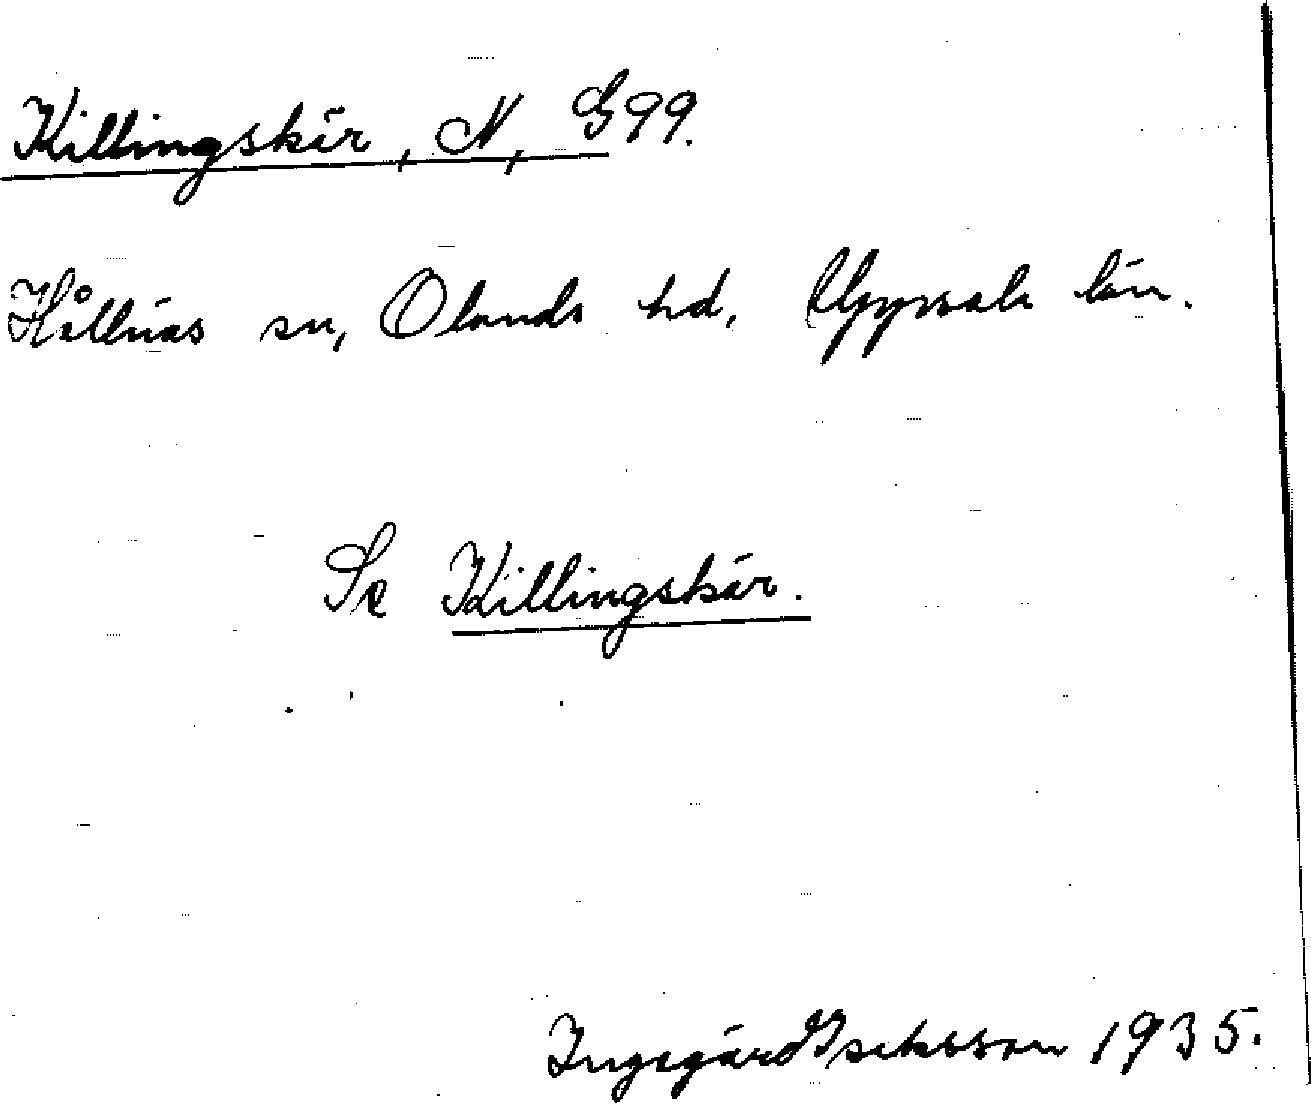 Killingskär, N, G99.
Hållnäs sn, Olands hd, Uppsala län.
Se Killingskär.
Ingegärd Isaksson 1935.